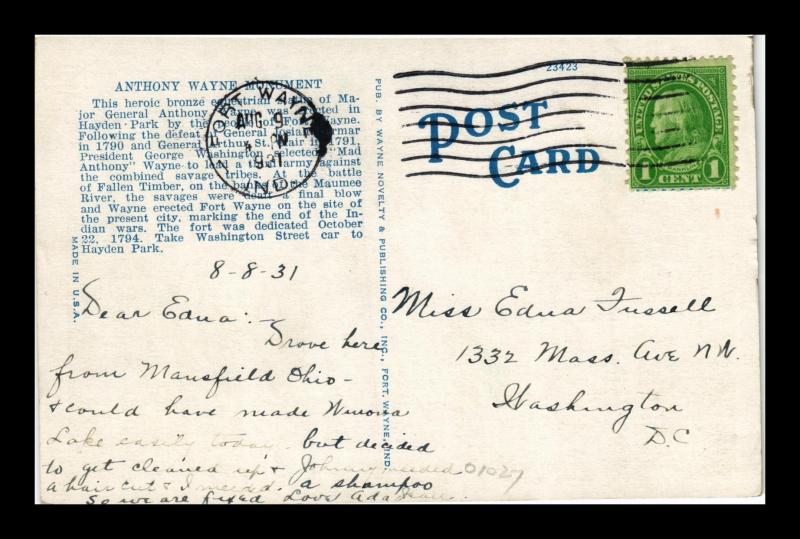 ANTHONY WAYNE MONUMENT
This heroic bronze equestrian statue of Ma-
jor General Anthony Wayne was erected in
Hayden Park by the people of Fort Wayne.
Following the defeat of General Josiah Harmar
in 1790 and General Arthur St. Clair in 1791,
President George Washington selected "Mad
Anthony" Wayne to lead a third army against
the combined savage tribes. At the battle
of Fallen Timber, on the banks of the Maumee
River, the savages were dealt a final blow
and Wayne erected Fort Wayne on the site of
the present city, marking the end of the In-
dian wars. The fort was dedicated October
22, 1794. Take Washington Street car to
Hayden Park.
MADE IN U.S.A.
FORT WAYNE
AUG 9
PM
1931
IND.
PUB. BY WAYNE NOVELTY & PUBLISHING CO., INC., FORT WAYNE, IND.
23423
POST
CARD
1 CENT 1
8-8-31
Dear Edna:-
Drove here
from Mansfield Ohio-
& could have made Winona
Lake easily today. but decided
to get cleaned up & Johnny needed
a hair cut & I needed a shampoo
So we are fixed Love Ada
01027
Miss Edna Fussell
1332 Mass. Ave N.W.
Washington
D.C